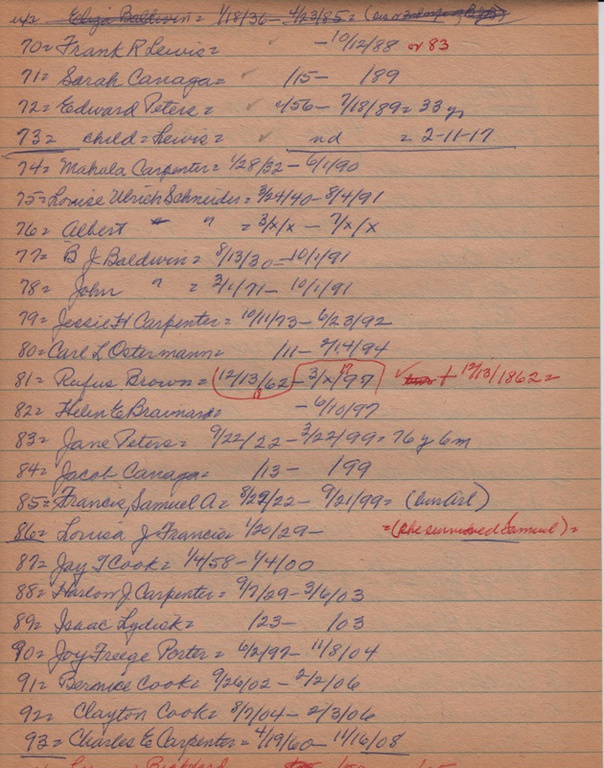 Eliza Baldwin = 1/18/36 - 4/23/85 =
70 = Frank R Lewis = - 10/12/88 or 83
71 = Sarah Canaga = /15 - /89
72 = Edward Peters = /56 - 7/18/89 = 33 y
73 = child = Lewis = nd = 2-11-17
74 = Mahala Carpenter = 1/28/32 - 6/1/90
75 = Louise Ulrich Schneider = 3/24/40 - 8/4/91
76 = Albert " " = 3/x/x - 7/x/x
77 = B J Baldwin = 8/13/30 - 10/1/91
78 = John " = 3/1/71 - 10/1/91
79 = Jessie H Carpenter = 10/11/73 - 6/23/92
80 = Carl L Ostermann = /11 - 2/14/94
81 = Rufus Brown = (12/13/62 - 3/x/97 + 12/13/1862 =
82 = Helen E Bravnard = - 6/10/97
83 = Jane Peters = 9/22/22 - 3/22/99 = 76 y 6m
84 = Jacob Canaga = /13 - /99
85 = Francis, Samuel A = 8/29/22 - 9/21/99 =
86 = Louisa J Francis = 1/20/29 - = (she survived Samuel) =
87 = Jay T Cook = 1/4/58 - 1/4/00
88 = Harlow J. Carpenter = 9/7/29 - 3/6/03
89 = Isaac Lydick = /23 - /03
90 = Joy Freege Porter = 6/2/97 - 11/8/04
91 = Bernice Cook = 9/26/02 - 2/2/06
92 = Clayton Cook = 8/7/04 - 2/3/06
93 = Charles E Carpenter = 4/19/60 - 11/16/08